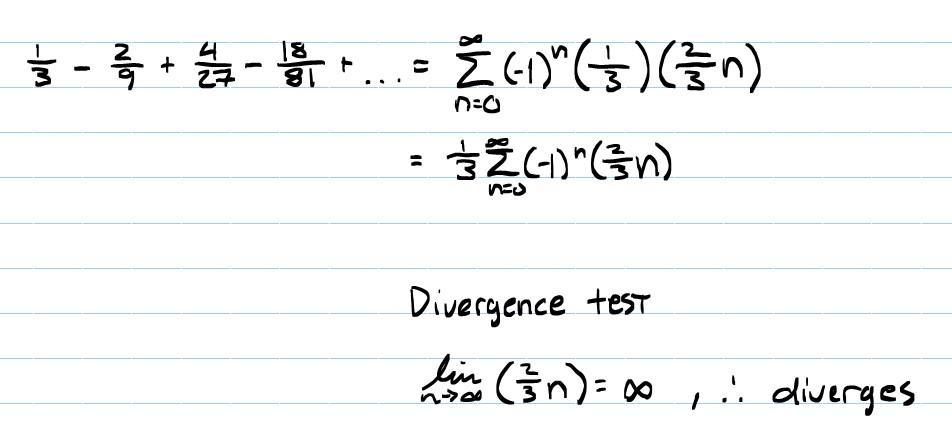 1/3 - 2/9 + 4/27 - 18/81 + ... = ∑_{n=0}^{∞} (-1)^n (1/3)(2/3 n)
= 1/3 ∑_{n=0}^{∞} (-1)^n (2/3 n)
Divergence test
lim_{n→∞} (2/3 n) = ∞ , ∴ diverges